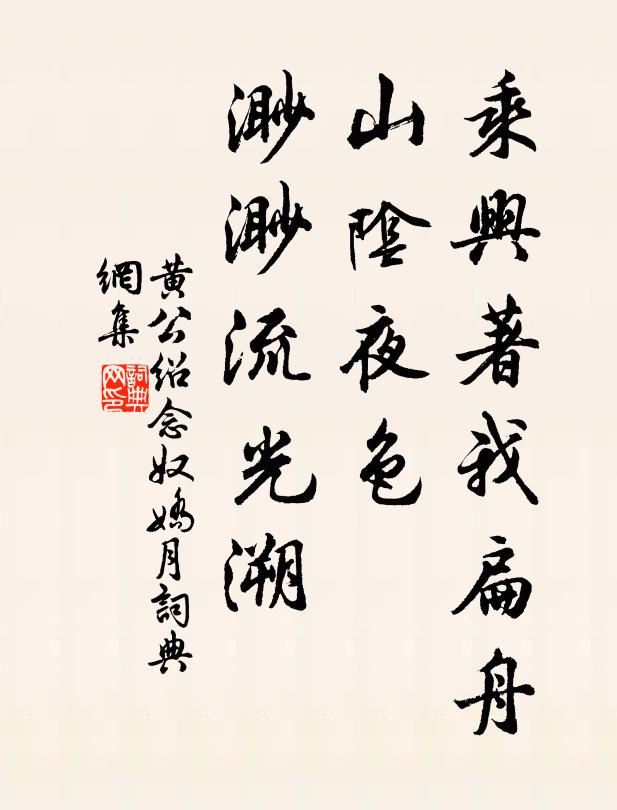 乘興著我扁舟
山陰夜色
渺渺流光溯
黄公绍念奴嬌月詞典
網集
詞典
网印